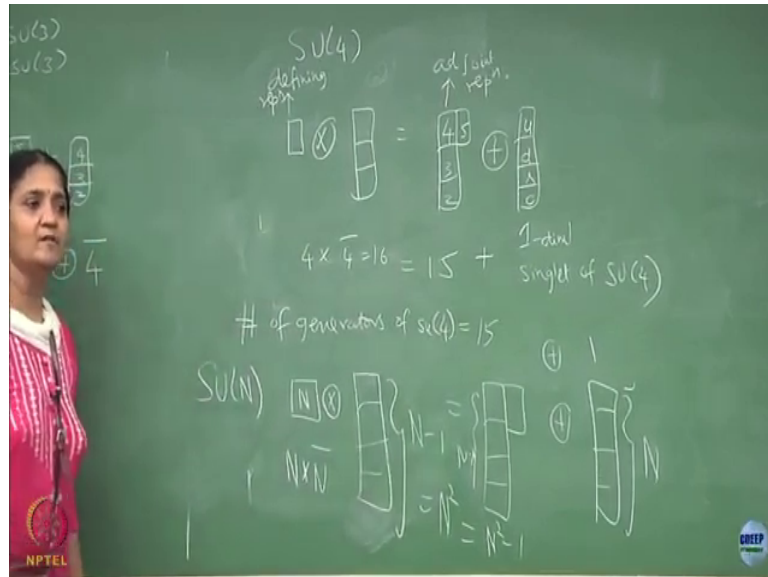 SU(3)
SU(3)
SU(4)
defining
repn
adjoint
repn.
⊗ = 4 5 ⊕ u
3 d
2 s
c
4
3
2
⊕ 4̄
4 × 4̄ = 16 = 15 + 1-diml
singlet of SU(4)
# of generators of su(4) = 15
⊕ 1
SU(N) N ⊗ } N-1 = ⊕ } N
N × N̄ = N² = N²-1
NPTEL
CDEEP